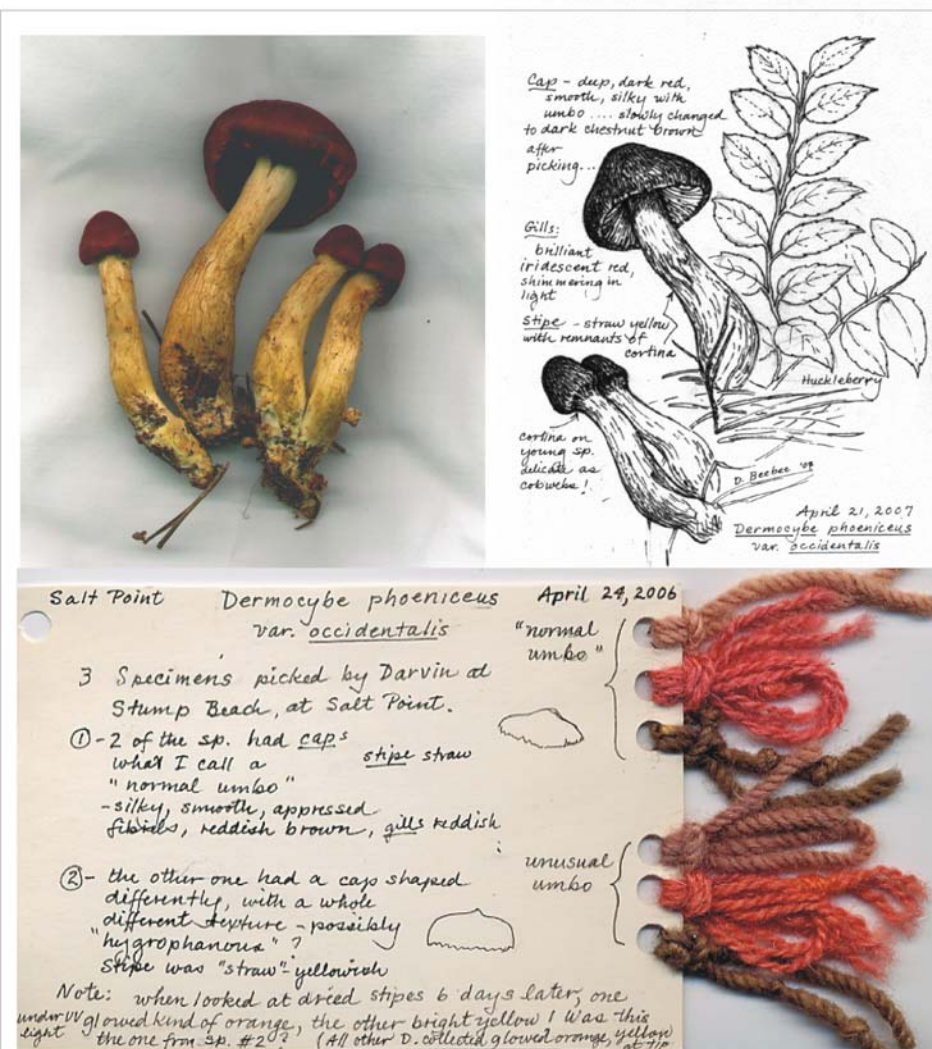 Cap - deep, dark red,
smooth, silky with
umbo .... slowly changed
to dark chestnut brown
after
picking...
Gills:
brilliant
iridescent red,
shimmering in
light
Stipe - straw yellow
with remnants of
cortina
Huckleberry
cortina on
young sp.
delicate as
cobwebs!
D. Beebee '07
April 21, 2007
Dermocybe phoeniceus
var. occidentalis
Salt Point
Dermocybe phoeniceus
var. occidentalis
April 24, 2006
3 Specimens picked by Darvin at
Stump Beach, at Salt Point.
① - 2 of the sp. had caps
what I call a
"normal umbo"
- silky, smooth, appressed
fibrils, reddish brown, gills reddish
stipe straw
"normal
umbo"
② - the other one had a cap shaped
differently, with a whole
different texture - possibly
"hygrophanous" ?
Stipe was "straw"-yellowish
unusual
umbo
Note: when looked at dried stipes 6 days later, one
under UV light glowed kind of orange, the other bright yellow! Was this
the one from sp. #2? (All other D. collected glowed orange, yellow
at tip